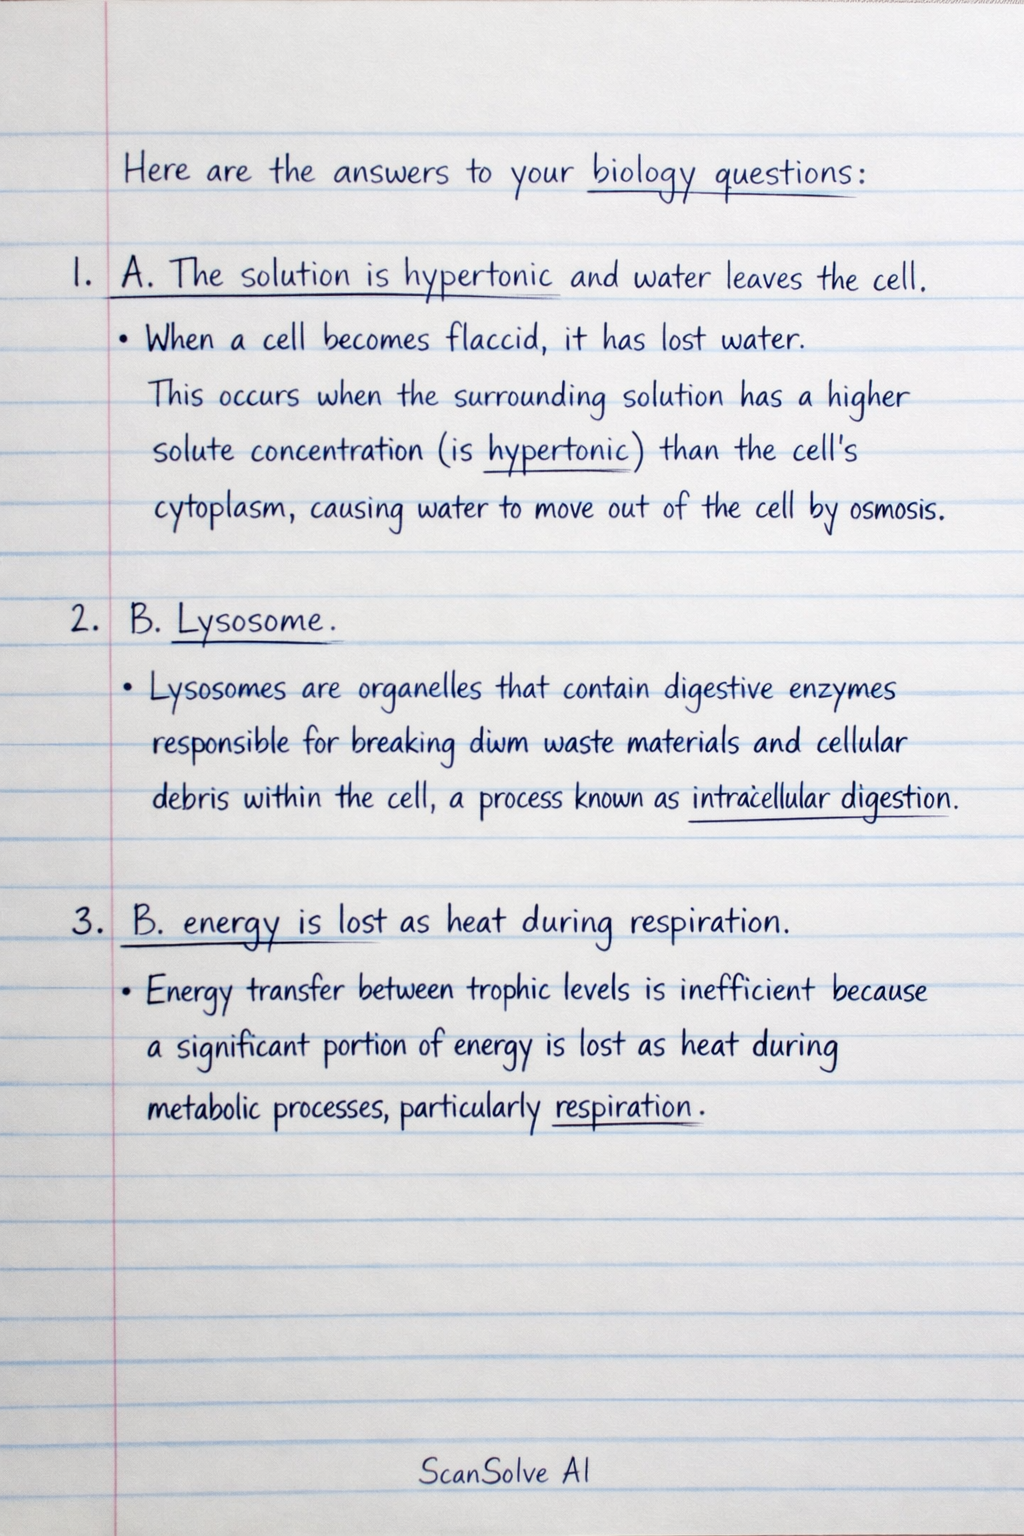 Here are the answers to your biology questions:
1. A. The solution is hypertonic and water leaves the cell.
• When a cell becomes flaccid, it has lost water.
This occurs when the surrounding solution has a higher
solute concentration (is hypertonic) than the cell's
cytoplasm, causing water to move out of the cell by osmosis.
2. B. Lysosome.
• Lysosomes are organelles that contain digestive enzymes
responsible for breaking diwm waste materials and cellular
debris within the cell, a process known as intracellular digestion.
3. B. energy is lost as heat during respiration.
• Energy transfer between trophic levels is inefficient because
a significant portion of energy is lost as heat during
metabolic processes, particularly respiration.
ScanSolve AI